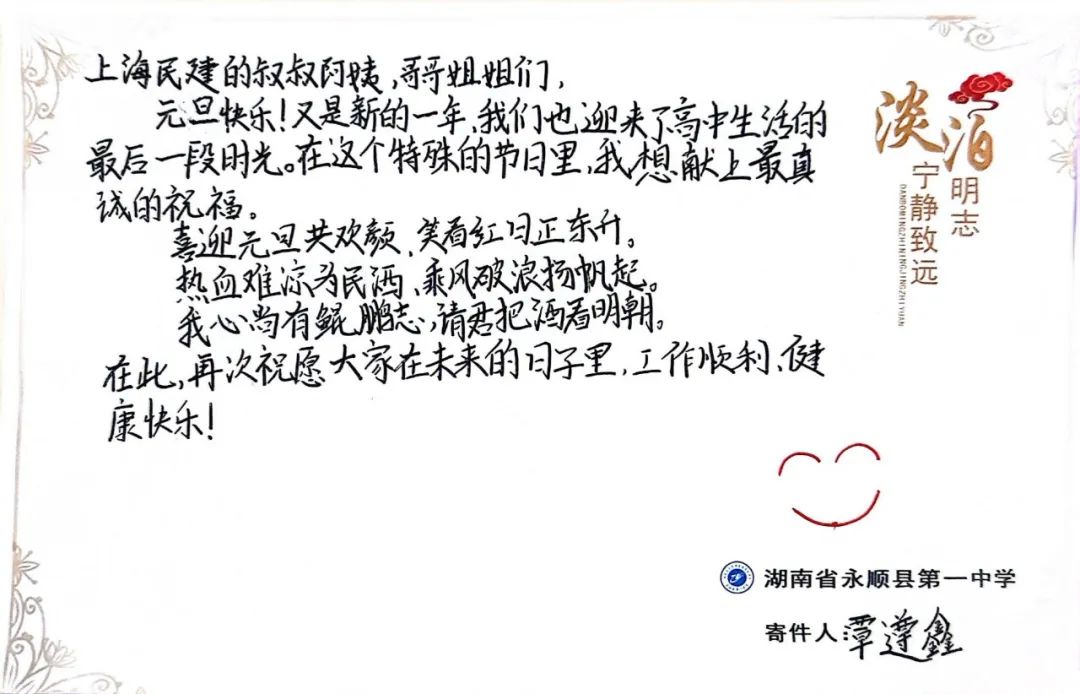 上海民建的叔叔阿姨,哥哥姐姐们,
元旦快乐!又是新的一年,我们也迎来了高中生活的
最后一段时光。在这个特殊的节日里,我想献上最真
诚的祝福。
喜迎元旦共欢颜,笑看红日正东升。
热血难凉为民洒,乘风破浪扬帆起。
我心尚有鲲鹏志,请君把酒看明朝。
在此,再次祝愿大家在未来的日子里,工作顺利、健
康快乐!
淡泊
明志
宁静致远
DANBOMINGZHININGJINGZHIYUAN
湖南省永顺县第一中学
寄件人:覃遵鑫